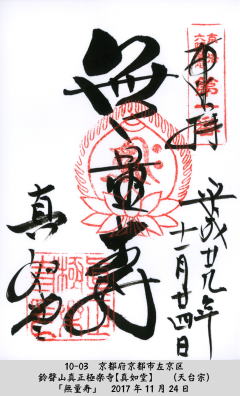 奉拝
無量寿
真如堂
平成廿九年
十一月廿四日
10-03　京都府京都市左京区
鈴聲山真正極楽寺【真如堂】　（天台宗）
「無量寿」　2017年11月24日